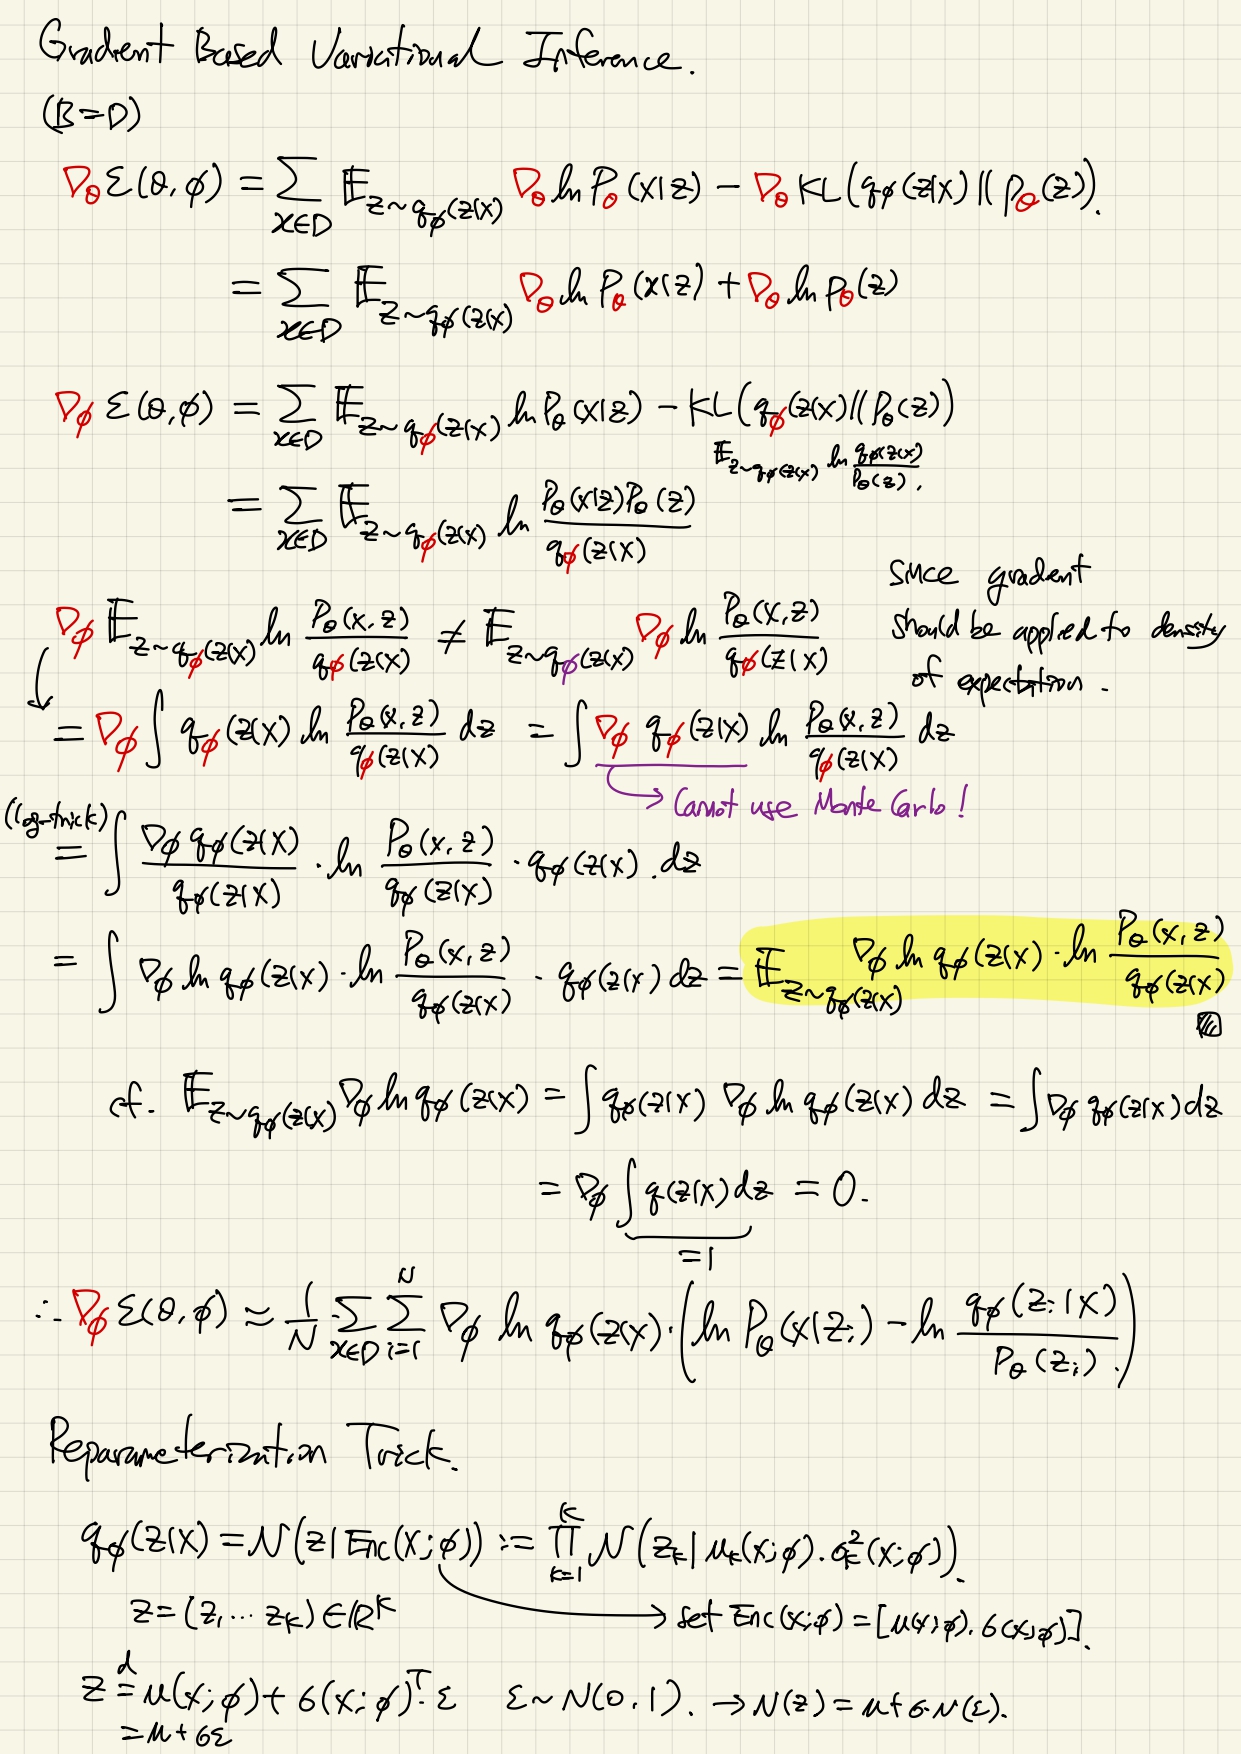 Gradient Based Variational Inference.
(B=D)
∇_θ ℰ(θ,ϕ) = ∑_{x∈D} 𝔼_{z∼q_ϕ(z|x)} ∇_θ ln P_θ(x|z) − ∇_θ KL(q_ϕ(z|x) || p_θ(z)).
= ∑_{x∈D} 𝔼_{z∼q_ϕ(z|x)} ∇_θ ln P_θ(x|z) + ∇_θ ln p_θ(z)
∇_ϕ ℰ(θ,ϕ) = ∑_{x∈D} 𝔼_{z∼q_ϕ(z|x)} ln P_θ(x|z) − KL(q_ϕ(z|x) || P_θ(z))
𝔼_{z∼q_ϕ(z|x)} ln q_ϕ(z|x)/P_θ(z).
= ∑_{x∈D} 𝔼_{z∼q_ϕ(z|x)} ln P_θ(x|z)P_θ(z)/q_ϕ(z|x)
since gradient
should be applied to density
of expectation.
∇_ϕ 𝔼_{z∼q_ϕ(z|x)} ln P_θ(x,z)/q_ϕ(z|x) ≠ 𝔼_{z∼q_ϕ(z|x)} ∇_ϕ ln P_θ(x,z)/q_ϕ(z|x)
= ∇_ϕ ∫ q_ϕ(z|x) ln P_θ(x,z)/q_ϕ(z|x) dz = ∫ ∇_ϕ q_ϕ(z|x) ln P_θ(x,z)/q_ϕ(z|x) dz
→ Cannot use Monte Carlo!
(log-trick)
= ∫ ∇_ϕ q_ϕ(z|x)/q_ϕ(z|x) · ln P_θ(x,z)/q_ϕ(z|x) · q_ϕ(z|x). dz
= ∫ ∇_ϕ ln q_ϕ(z|x) · ln P_θ(x,z)/q_ϕ(z|x) · q_ϕ(z|x) dz = 𝔼_{z∼q_ϕ(z|x)} ∇_ϕ ln q_ϕ(z|x) · ln P_θ(x,z)/q_ϕ(z|x)
cf. 𝔼_{z∼q_ϕ(z|x)} ∇_ϕ ln q_ϕ(z|x) = ∫ q_ϕ(z|x) ∇_ϕ ln q_ϕ(z|x) dz = ∫ ∇_ϕ q_ϕ(z|x) dz
= ∇_ϕ ∫ q(z|x) dz = 0.
= 1
∴ ∇_ϕ ℰ(θ,ϕ) ≈ 1/N ∑_{x∈D} ∑_{i=1}^{N} ∇_ϕ ln q_ϕ(z|x) · (ln P_θ(x|z_i) − ln q_ϕ(z_i|x)/P_θ(z_i).)
Reparameterization Trick.
q_ϕ(z|x) = N(z|Enc(x;ϕ)) := ∏_{k=1}^{K} N(z_k|μ_k(x;ϕ), σ_k²(x;ϕ)).
z = (z_1 ⋯ z_K) ∈ ℝ^K → set Enc(x;ϕ) = [μ(x;ϕ), σ(x;ϕ)].
z =^d μ(x;ϕ) + σ(x;ϕ)^T · ε ε ∼ N(0,1). → N(z) = μ + σ·N(ε).
= μ + σε